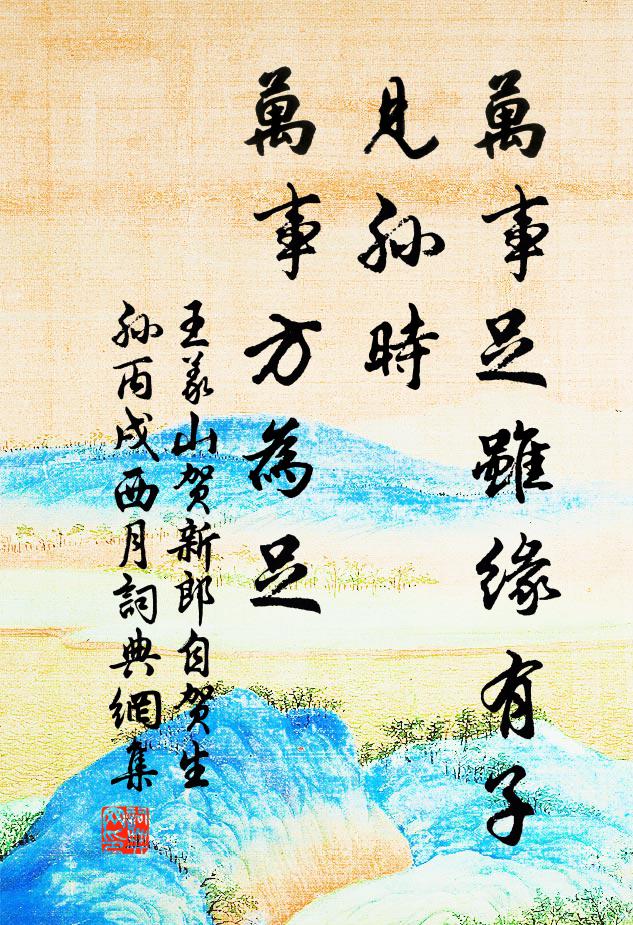 萬事足雖緣有子
見孫時
萬事方為足
王義山賀新郎自賀生
孫丙戌酉月詞典網集